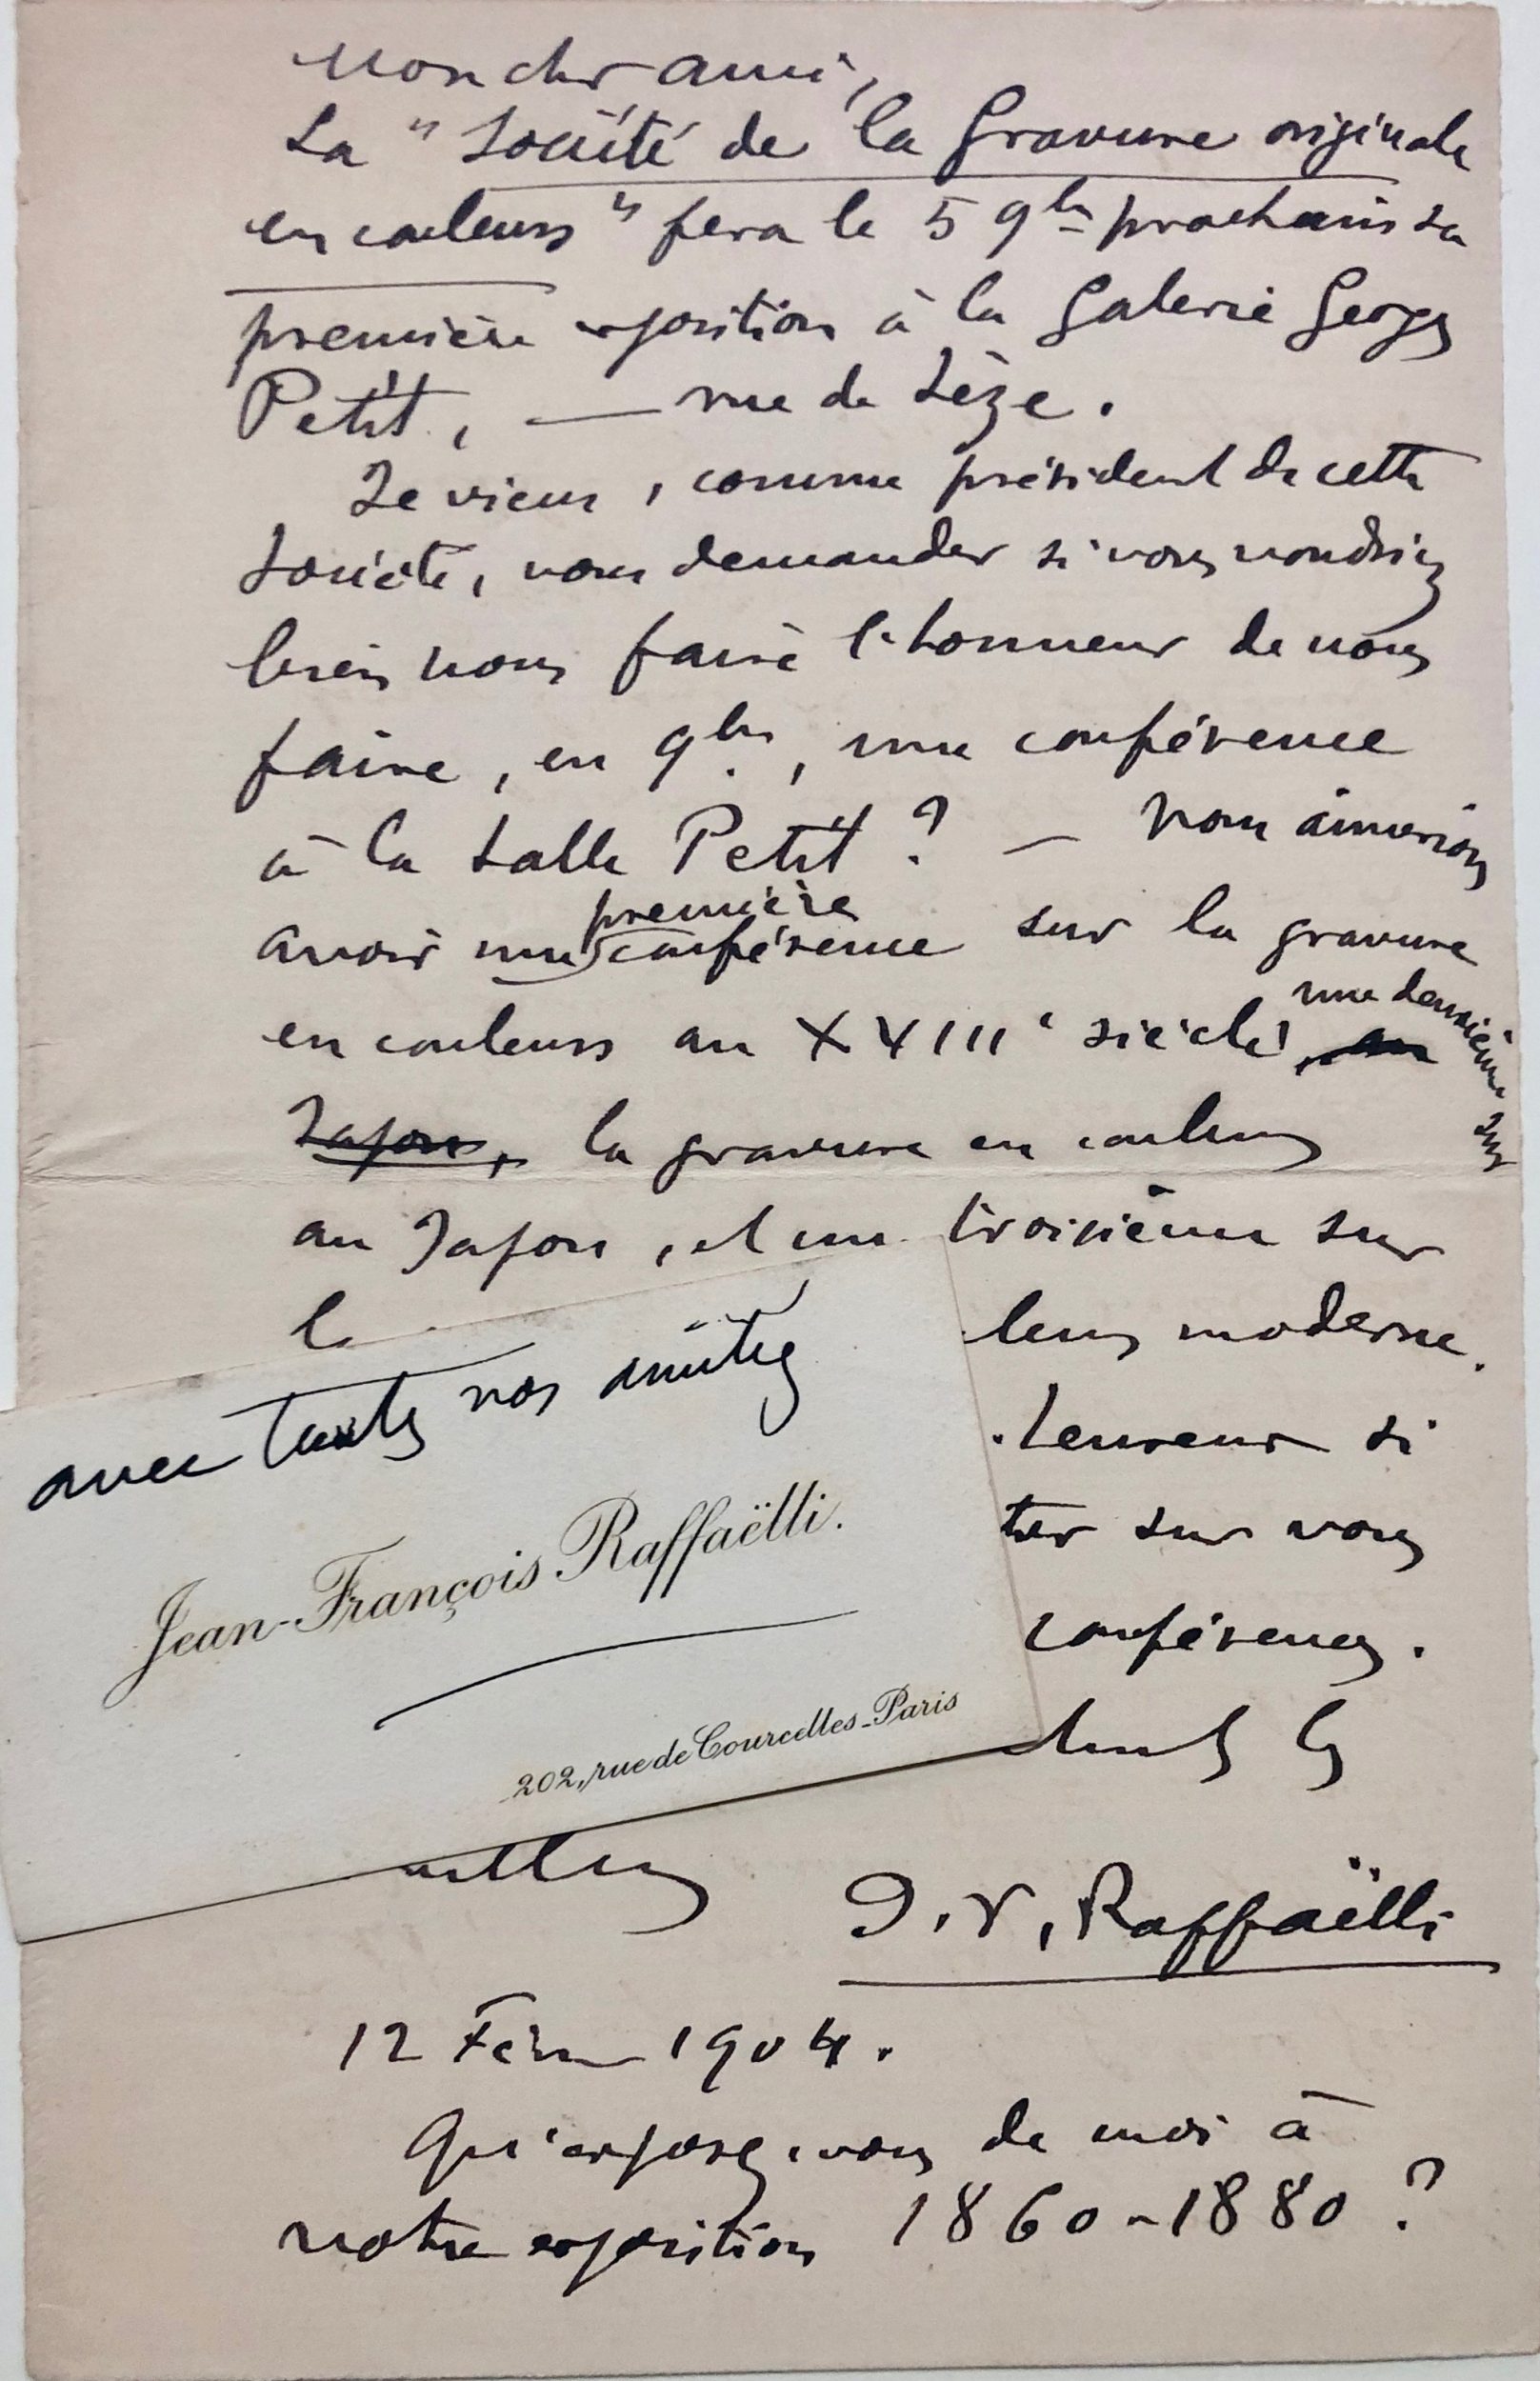 Mon cher ami,
La "Société de la Gravure originale
en couleurs" fera le 5 9bre prochain sa
première exposition à la Galerie Georges
Petit, — rue de Sèze.
Je viens, comme président de cette
Société, vous demander si vous voudriez
bien nous faire l'honneur de nous
faire, en 9bre, une conférence
à la Salle Petit ? — Nous aimerions
avoir une première conférence sur la gravure
en couleurs au XVIIIe siècle, au une deuxième sur
Japon, la gravure en couleurs
au Japon, et une troisième sur
l
leurs moderne.
teureur si
ter sur vous
conférences.
avec toutes nos amitiés
Jean-François Raffaëlli.
202, rue de Courcelles-Paris
J. F. Raffaëlli
12 Févr 1904.
Qu'exposez-vous de moi à
votre exposition 1860-1880 ?